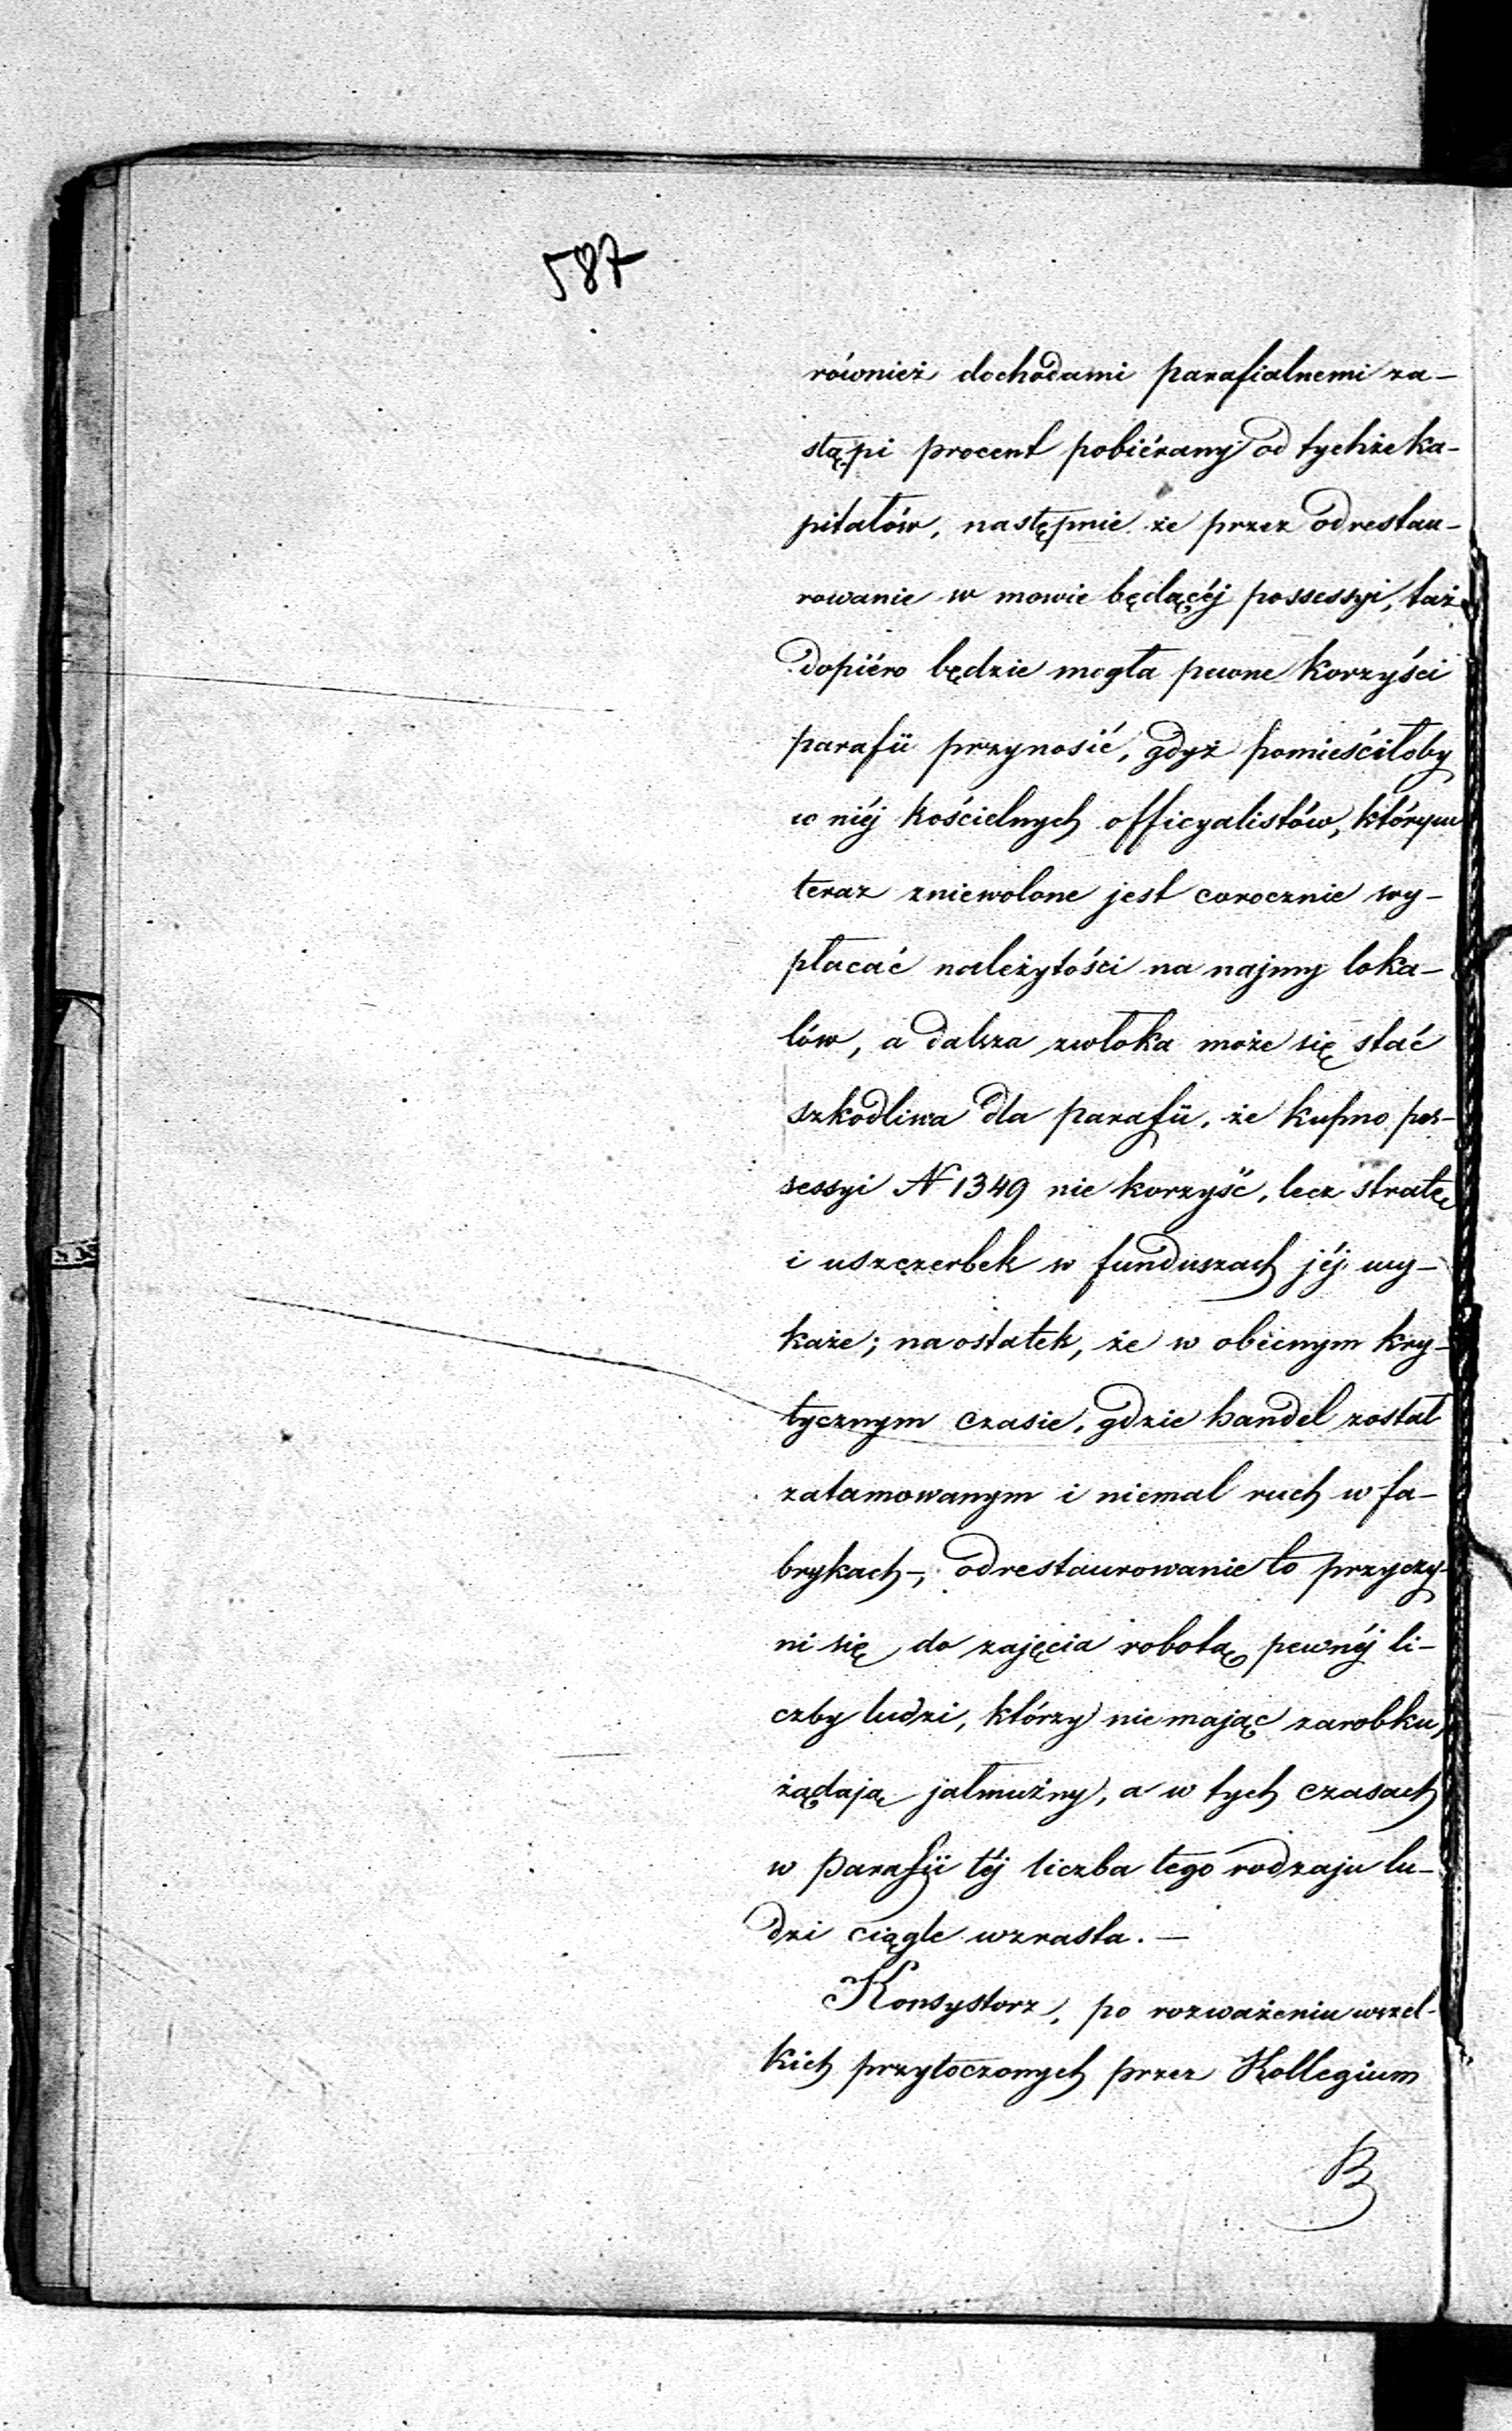 587
również dochodami parafialnemi za-
stąpi procent pobiérany od tychże ka-
pitałów, następnie że przez odrestau-
rowanie w mowie będącéj possessyi, taż
dopiéro będzie mogła pewne korzyści
parafii przynosić, gdyż pomieściłoby
w niéj kościelnych officyalistów, którym
teraz zniewolone jest corocznie wy-
płacać należytości na najmy loka-
lów, a dalsza zwłoka może się stać
szkodliwa dla parafii, że kupno pos-
sessyi N 1349 nie korzyść, lecz stratę
i uszczerbek w funduszach jéj wy-
każe; naostatek, że w obecnym kry-
tycznym czasie, gdzie handel został
zatamowanym i niemal ruch w fa-
brykach -, odrestaurowanie to przyczy-
ni się do zajęcia robotą pewnéj li-
czby ludzi, którzy nie mając zarobku,
żądają jałmużny, a w tych czasach
w parafii téj liczba tego rodzaju lu-
dzi ciągle wzrasta. —
Konsystorz, po rozważeniu wszel-
kich przytoczonych przez Kollegium